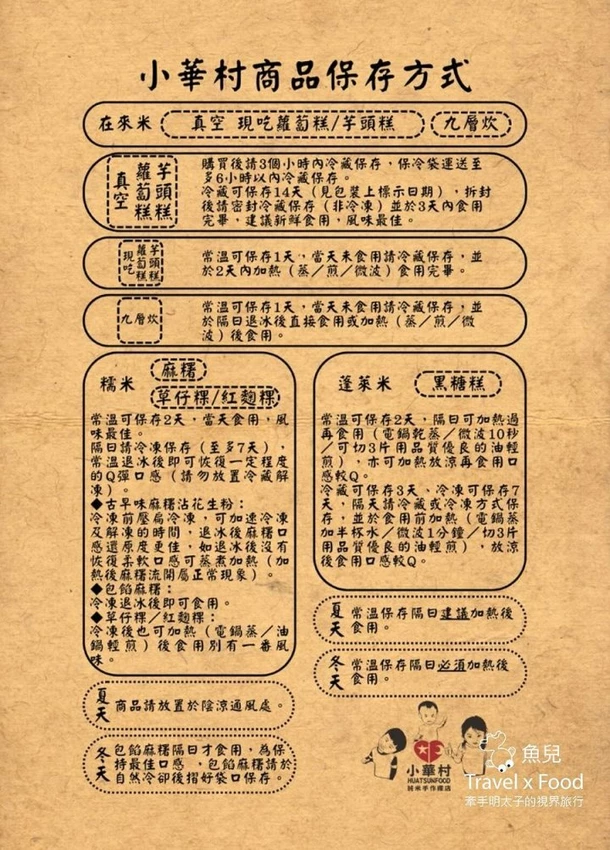 小華村商品保存方式
在來米 真空 現吃蘿蔔糕/芋頭糕 九層炊
真空 蘿蔔糕 芋頭糕
購買後請3個小時內冷藏保存，保冷袋運送至
多6小時以內冷藏保存。
冷藏可保存14天（見包裝上標示日期），拆封
後請密封冷藏保存（非冷凍）並於3天內食用
完畢，建議新鮮食用，風味最佳。
現吃 蘿蔔糕 芋頭糕
常溫可保存1天，當天未食用請冷藏保存，並
於2天內加熱（蒸／煎／微波）食用完畢。
九層炊
常溫可保存1天，當天未食用請冷藏保存，並
於隔日退冰後直接食用或加熱（蒸／煎／微
波）後食用。
糯米 麻糬
草仔粿/紅麴粿
常溫可保存2天，當天食用，風
味最佳。
隔日請冷凍保存（至多7天），
常溫退冰後即可恢復一定程度
的Q彈口感（請勿放置冷藏解
凍）。
◆古早味麻糬沾花生粉：
冷凍前壓扁冷凍，可加速冷凍
及解凍的時間，退冰後麻糬口
感還原度更佳，如退冰後沒有
恢復柔軟口感可蒸煮加熱（加
熱後麻糬流開屬正常現象）。
◆包餡麻糬：
冷凍退冰後即可食用。
◆草仔粿／紅麴粿：
冷凍後也可加熱（電鍋蒸／油
鍋輕煎）後食用別有一番風
味。
夏天 商品請放置於陰涼通風處。
冬天 包餡麻糬隔日才食用，為保
持最佳口感，包餡麻糬請於
自然冷卻後摺好袋口保存。
蓬萊米 黑糖糕
常溫可保存2天，隔日可加熱過
再食用（電鍋乾蒸／微波10秒
／可切3片用品質優良的油輕
煎），亦可加熱放涼再食用口
感較Q。
冷藏可保存3天、冷凍可保存7
天，隔天請冷藏或冷凍方式保
存，並於食用前加熱（電鍋蒸
加半杯水／微波1分鐘／切3片
用品質優良的油輕煎），放涼
後食用口感較Q。
夏天 常溫保存隔日建議加熱後
食用。
冬天 常溫保存隔日必須加熱後
食用。
小華村
HUATSUNFOOD
純米手作糧店
魚兒
Travel x Food
牽手明太子的視界旅行